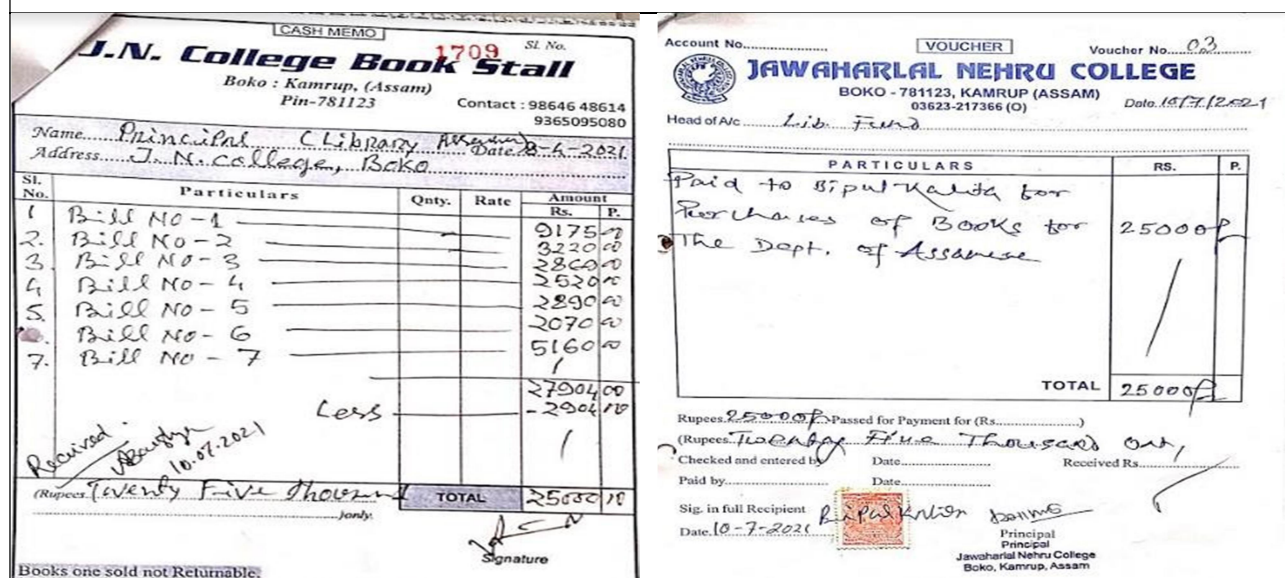 CASH MEMO
1709
Sl. No.
J.N. College Book Stall
Boko : Kamrup, (Assam)
Pin-781123
Contact : 98646 48614
9365095080
Name Principal (Library
Date 8-4-2021
Address J. N. College, Boko
Sl. No. Particulars Qnty. Rate Amount Rs. P.
1 Bill No - 1 9175 00
2. Bill No - 2 3220 00
3. Bill No - 3 00
4 Bill No - 4 2520 00
5. Bill No - 5 2890 00
Bill No - 6 2070 00
7. Bill No - 7 5160 00
27904 00
Less - 2904 00
Received.
10.07.2021
(Rupees Twenty Five Thousand TOTAL 25000 00
)only.
Signature
Books one sold not Returnable.
Account No.
VOUCHER
Voucher No. 03
JAWAHARLAL NEHRU COLLEGE
BOKO - 781123, KAMRUP (ASSAM)
03623-217366 (O)
Date 10/7/2021
Head of A/c Lib. Fund
PARTICULARS RS. P.
Paid to Bipul Kalita for
Purchases of Books for 25000
The Dept. of Assamese
TOTAL 25000
Rupees 25000 Passed for Payment for (Rs. )
(Rupees Twenty Five Thousand only
Checked and entered by Date Received Rs.
Paid by Date
Sig. in full Recipient Bipul Kalita
Date. 10-7-2021
Principal
Principal
Jawaharlal Nehru College
Boko, Kamrup, Assam